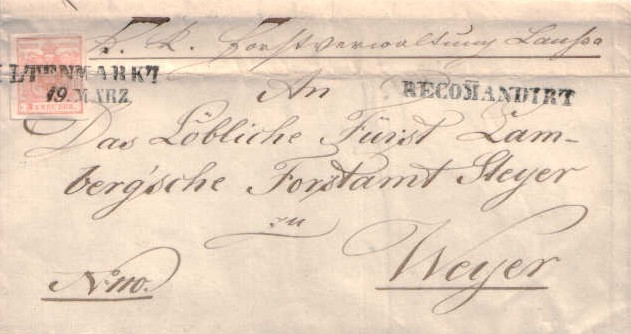 K. K. Forstverwaltung Laussa
LTENMARKT
19. MÄRZ
3 KREUZER
RECOMANDIRT
An
Das Löbliche Fürst Lam-
berg'sche Forstamt Steyer
zu
Weyer
Nr 110.